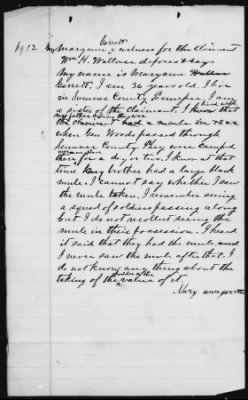 Garrett
Maryann a witness for the claimant
Wm H. Wallace deposes & says
My name is Maryann Wallace
Garrett. I am 36 years old. I live
in Sumner County Tennessee. I am
a sister of the Claimant. I lived with
my father during the war
the claimant had a mule
when Gen Woods passed through
Sumner County. They were camped
there for a day or two. I know at that
time my brother had a large black
mule. I cannot say whether I saw
the mule taken. I remember seeing
a squad of soldiers passing along
but I do not recollect seeing the
mule in their possession. I heard
it said that they had the mule, and
I never saw the mule after that. I
do not know any thing about the
taking of the value of it.
Mary ann